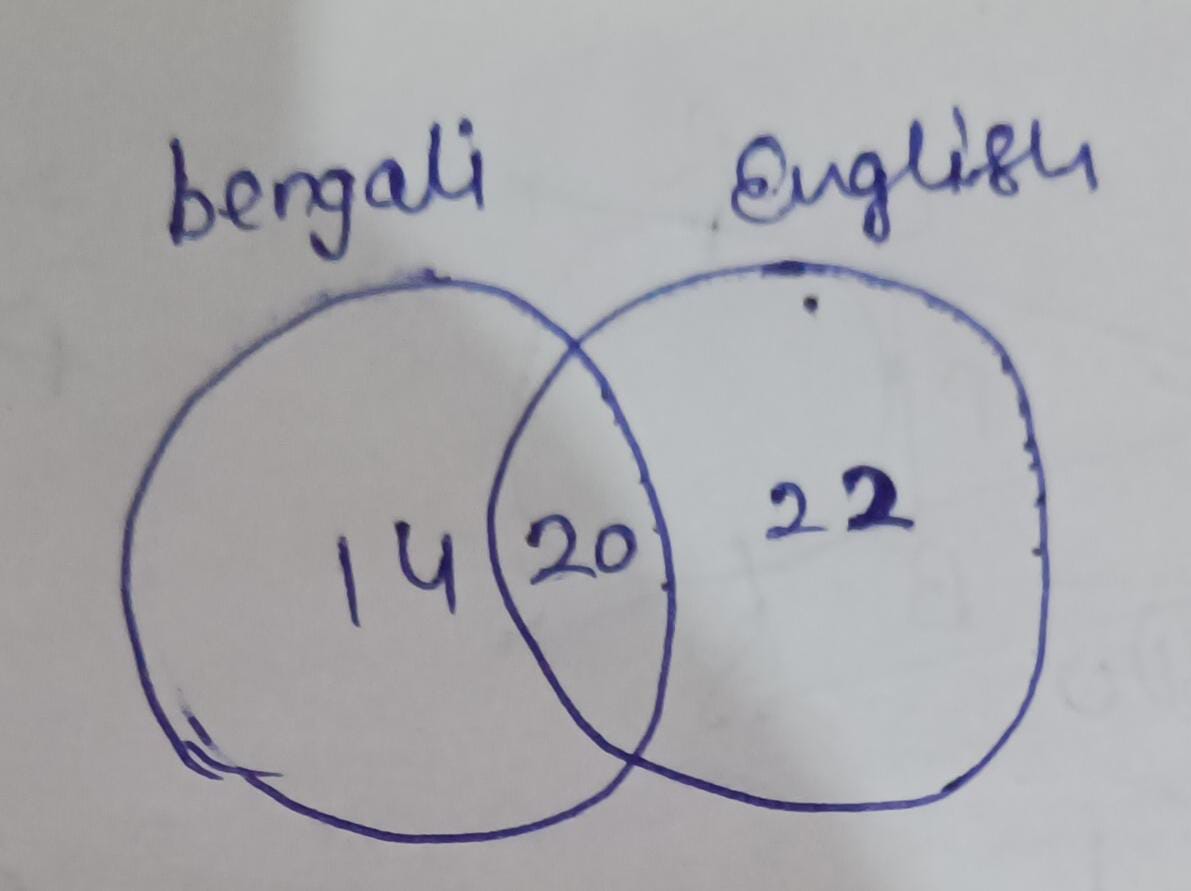 bengali English
14 20 22